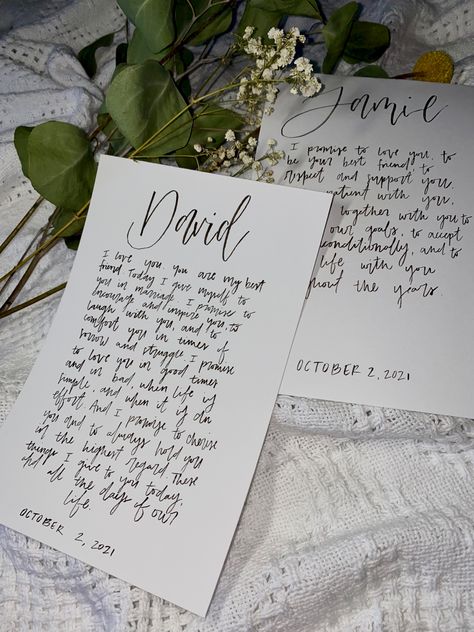 David
I love you. You are my best
friend. Today I give myself to
you in marriage. I promise to
encourage and inspire you, to
laugh with you, and to
comfort you in times of
sorrow and struggle. I promise
to love you in good times
and in bad, when life is
simple, and when it is an
effort. And I promise to cherish
you and to always hold you
in the highest regard. These
things I give to you today,
and all the days of our
life.
OCTOBER 2, 2021
Jamie
I promise to love you, to
be your best friend, to
respect and support you,
patient with you,
together with you to
our goals, to accept
conditionally, and to
life with you
the years.
OCTOBER 2, 2021